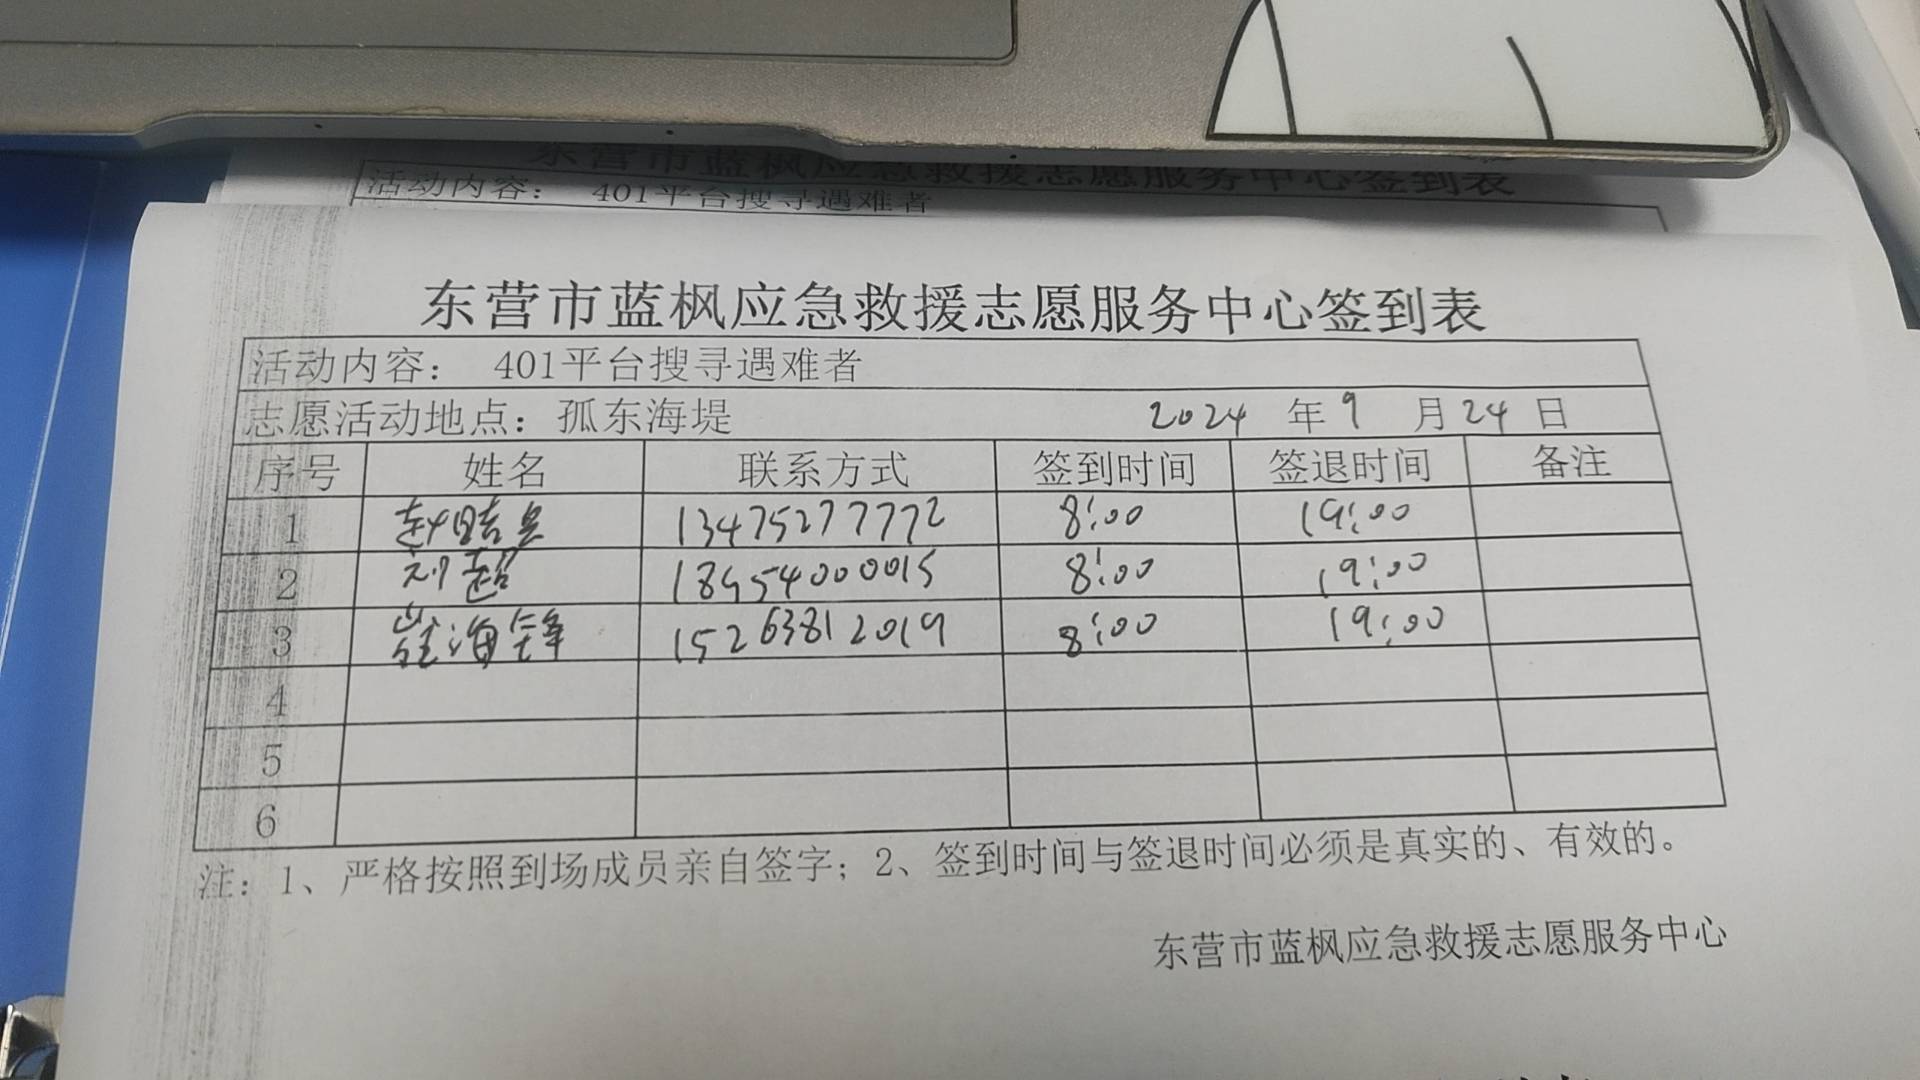 东营市蓝枫应急救援志愿服务中心签到表
活动内容： 401平台搜寻遇难者
东营市蓝枫应急救援志愿服务中心签到表
活动内容： 401平台搜寻遇难者
志愿活动地点：孤东海堤 2024 年 9 月 24 日
序号 姓名 联系方式 签到时间 签退时间 备注
1 13475277772 8:00 19:00
2 刘超 18954000015 8:00 19:00
3 崔海锋 15263812019 8:00 19:00
4
5
6
注：1、严格按照到场成员亲自签字；2、签到时间与签退时间必须是真实的、有效的。
东营市蓝枫应急救援志愿服务中心